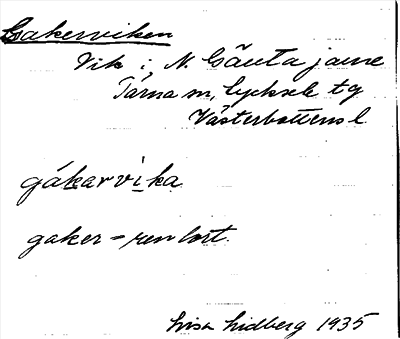 Gakerviken
Vik i N. Gäuta jaure
Tärna sn, Lycksele tg
Västerbottens l
gákarvika
gaker = renlort.
Lisa Lidberg 1935